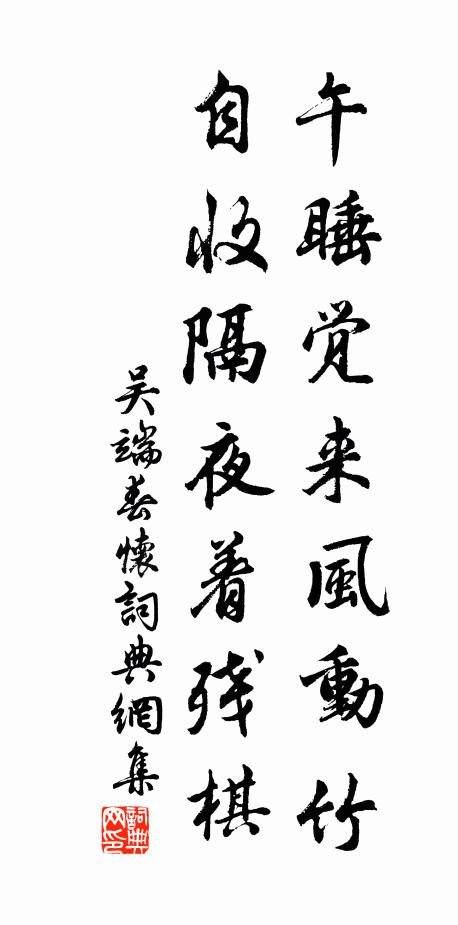 午睡覚来風動竹
自收隔夜着残棋
吴端春懷詞典網集
詞典网印